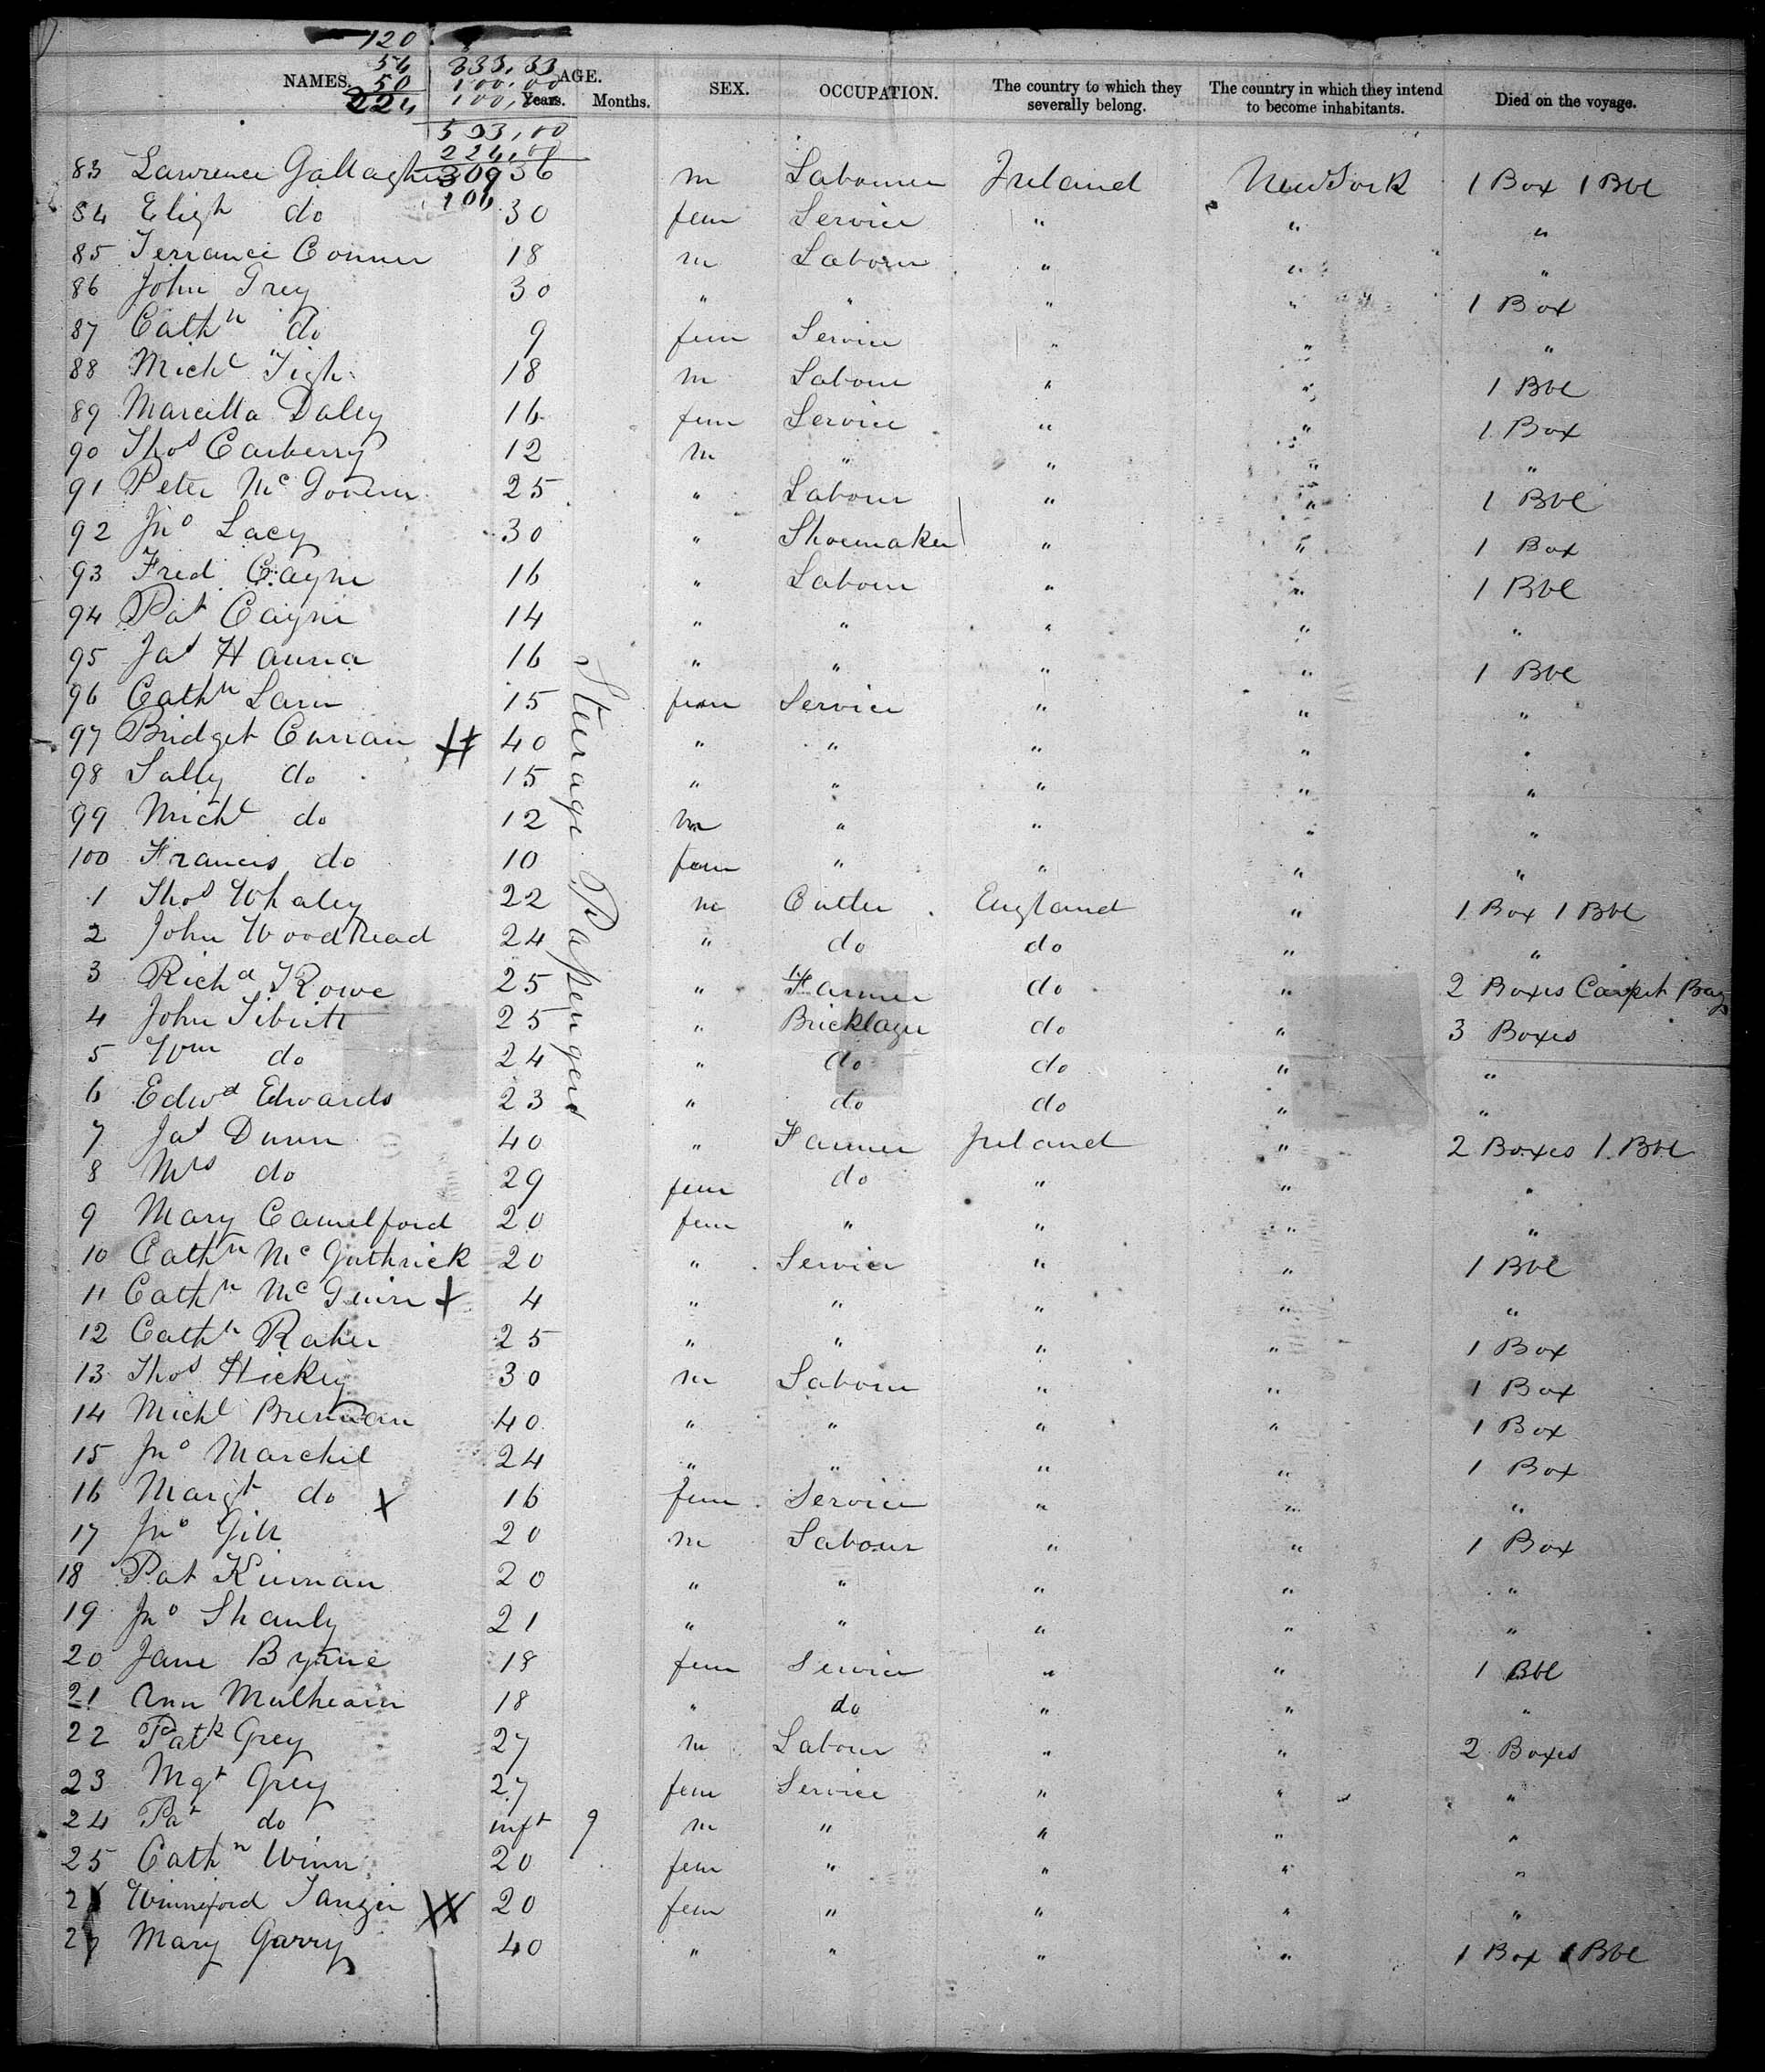 120
54 333,33
NAMES. 50 100,00 AGE. SEX. OCCUPATION. The country to which they severally belong. The country in which they intend to become inhabitants. Died on the voyage.
224 100,00 Years. Months.
533,00
224,00
83 Lawrence Gallagher 309 36 m Labourer Ireland New York 1 Box 1 Bbl
106
84 Eligh do 30 fem Service " " "
85 Terrance Conner 18 m Labour " " "
86 John Grey 30 " " " " 1 Box
87 Cathn do 9 fem Service " " "
88 Michl Tigh 18 m Labour " " 1 Bbl
89 Marcilla Daley 16 fem Service " " 1 Box
90 Thos Carberry 12 m " " " "
91 Peter McGovern 25 " Labour " " 1 Bbl
92 Jno Lacy 30 " Shoemaker " " 1 Box
93 Fred Cayne 16 " Labour " " 1 Bbl
94 Pat Cayne 14 " " " " "
95 Jas Hanna 16 " " " " 1 Bbl
96 Cathn 15 fem Service " " "
97 Bridget Curran 40 " " " " "
98 Sally do 15 " " " " "
99 Michl do 12 m " " " "
100 Francis do 10 fem " " " "
1 Thos Whaley 22 m Cutler England " 1 Box 1 Bbl
2 John Woodhead 24 " do do " "
3 Richd Rowe 25 " Farmer do " 2 Boxes Carpet Bag
4 John 25 " Bricklayer do " 3 Boxes
5 Wm do 24 " do do " "
6 Edwd Edwards 23 " do do " "
7 Jas Dunn 40 " Farmer Ireland " 2 Boxes 1 Bbl
8 Mrs do 29 fem do " " "
9 Mary Camelford 20 fem " " " "
10 Cathn McGuthrick 20 " Service " " 1 Bbl
11 Cathn McGuire X 4 " " " " "
12 Cathn Raher 25 " " " " 1 Box
13 Thos Hickey 30 m Labour " " 1 Box
14 Michl Brennan 40 " " " " 1 Box
15 Jno Marchil 24 " " " " 1 Box
16 Margt do X 16 fem Service " " "
17 Jno Gill 20 m Labour " " 1 Box
18 Pat Kiernan 20 " " " " "
19 Jno Shanly 21 " " " " "
20 Jane Byrne 18 fem Service " " 1 Bbl
21 Ann Mulhearn 18 " do " " "
22 Patk Grey 27 m Labour " " 2 Boxes
23 Mgt Grey 27 fem Service " " "
24 Pat do inft 9 m " " " "
25 Cathn Winn 20 fem " " " "
Winneford XX 20 fem " " " "
Mary Garry 40 " " " " 1 Box 1 Bbl
Steerage Passengers